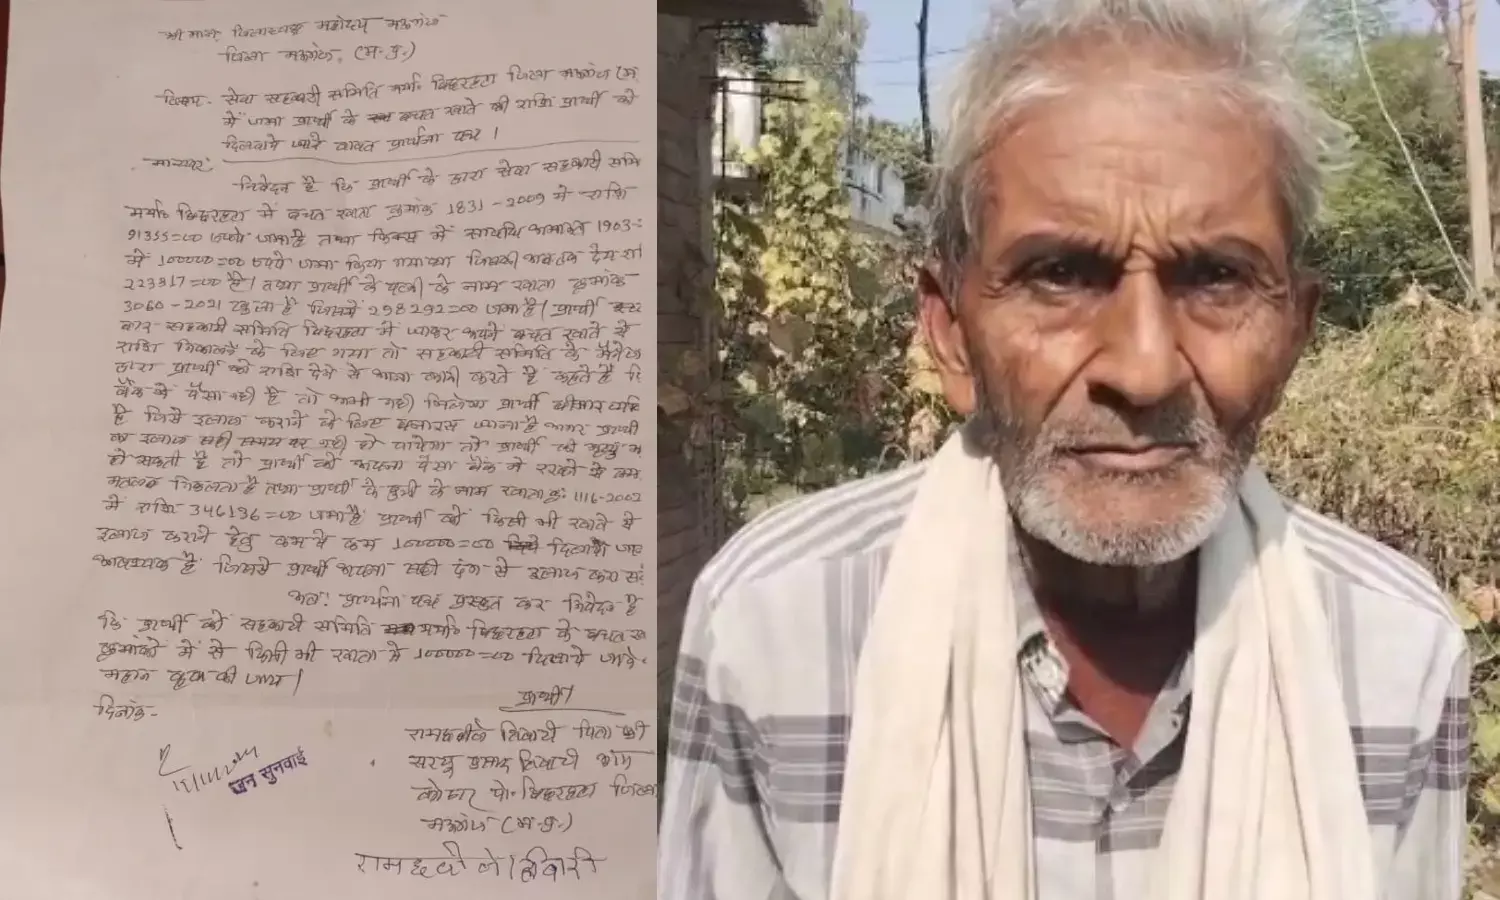 श्रीमान् जिलाध्यक्ष महोदय मऊगंज
जिला मऊगंज (म.प्र.)
विषय- सेवा सहकारी समिति मर्या. जिला मऊगंज (म
में जमा प्रार्थी के बचत खाते की राशि प्रार्थी को
दिलवाये जाने बावत प्रार्थना पत्र ।
मान्यवर,
निवेदन है कि प्रार्थी के द्वारा सेवा सहकारी समि
मर्या. में बचत खाता क्रमांक 1831-2009 में राशि
91355=00 रूपये जमा है तथा फिक्स में 1903-
में 100000=00 रूपये जमा किया गया था जिसकी अबतक देय रा
223317=00 है। तथा प्रार्थी के पत्नी के नाम खाता क्रमांक
3060-2021 खुला है जिसमें 298292=00 जमा है। प्रार्थी
बार सहकारी समिति में जाकर अपने बचत खाते से
राशि निकालने के लिए गया तो सहकारी समिति के मैनेज
द्वारा प्रार्थी को राशि देने से आना कानी करते है कहते है कि
बैंक में पैसा नही है तो कभी नही प्रार्थी बीमार
है जिसे इलाज कराने के लिए बनारस जाना है अगर प्रार्थी
का इलाज सही समय पर नही हो पायेगा तो प्रार्थी की मृत्यु
हो सकती है तो प्रार्थी को अपना पैसा बैंक में रखने से क्या
मतलब निकलता है तथा प्रार्थी के पुत्री के नाम खाता क्र. 1116-2002
में राशि 346136=00 जमा है प्रार्थी को किसी भी खाते से
इलाज कराने हेतु कम से कम 100000=00 दिलाया जा
आवश्यक है जिससे प्रार्थी अपना सही ढंग से इलाज करा स
अतः प्रार्थना पत्र प्रस्तुत कर निवेदन है
कि प्रार्थी को सहकारी समिति मर्या. के बचत
क्रमांको में से किसी भी खाता से 100000=00 दिलाये जाने
महान कृपा की जाय।
दिनांक-
प्रार्थी
रामछबीले तिवारी पिता श्री
सरयू प्रसाद तिवारी ग्राम
पो. जिला
मऊगंज (म.प्र.)
जन सुनवाई
रामछबीले तिवारी